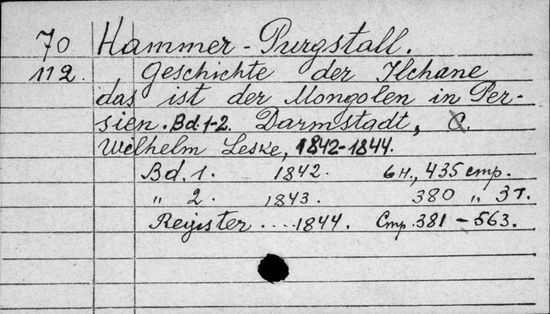 70 Hammer-Purgstall.
112. Geschichte der Ilchane
das ist der Mongolen in Per-
sien. Bd. 1-2. Darmstadt, C.
Wilhelm Leske, 1842-1844.
Bd. 1. 1842. 6 н., 435 стр.
„ 2. 1843. 380 „ 3 т.
Register .... 1844. Стр. 381-563.